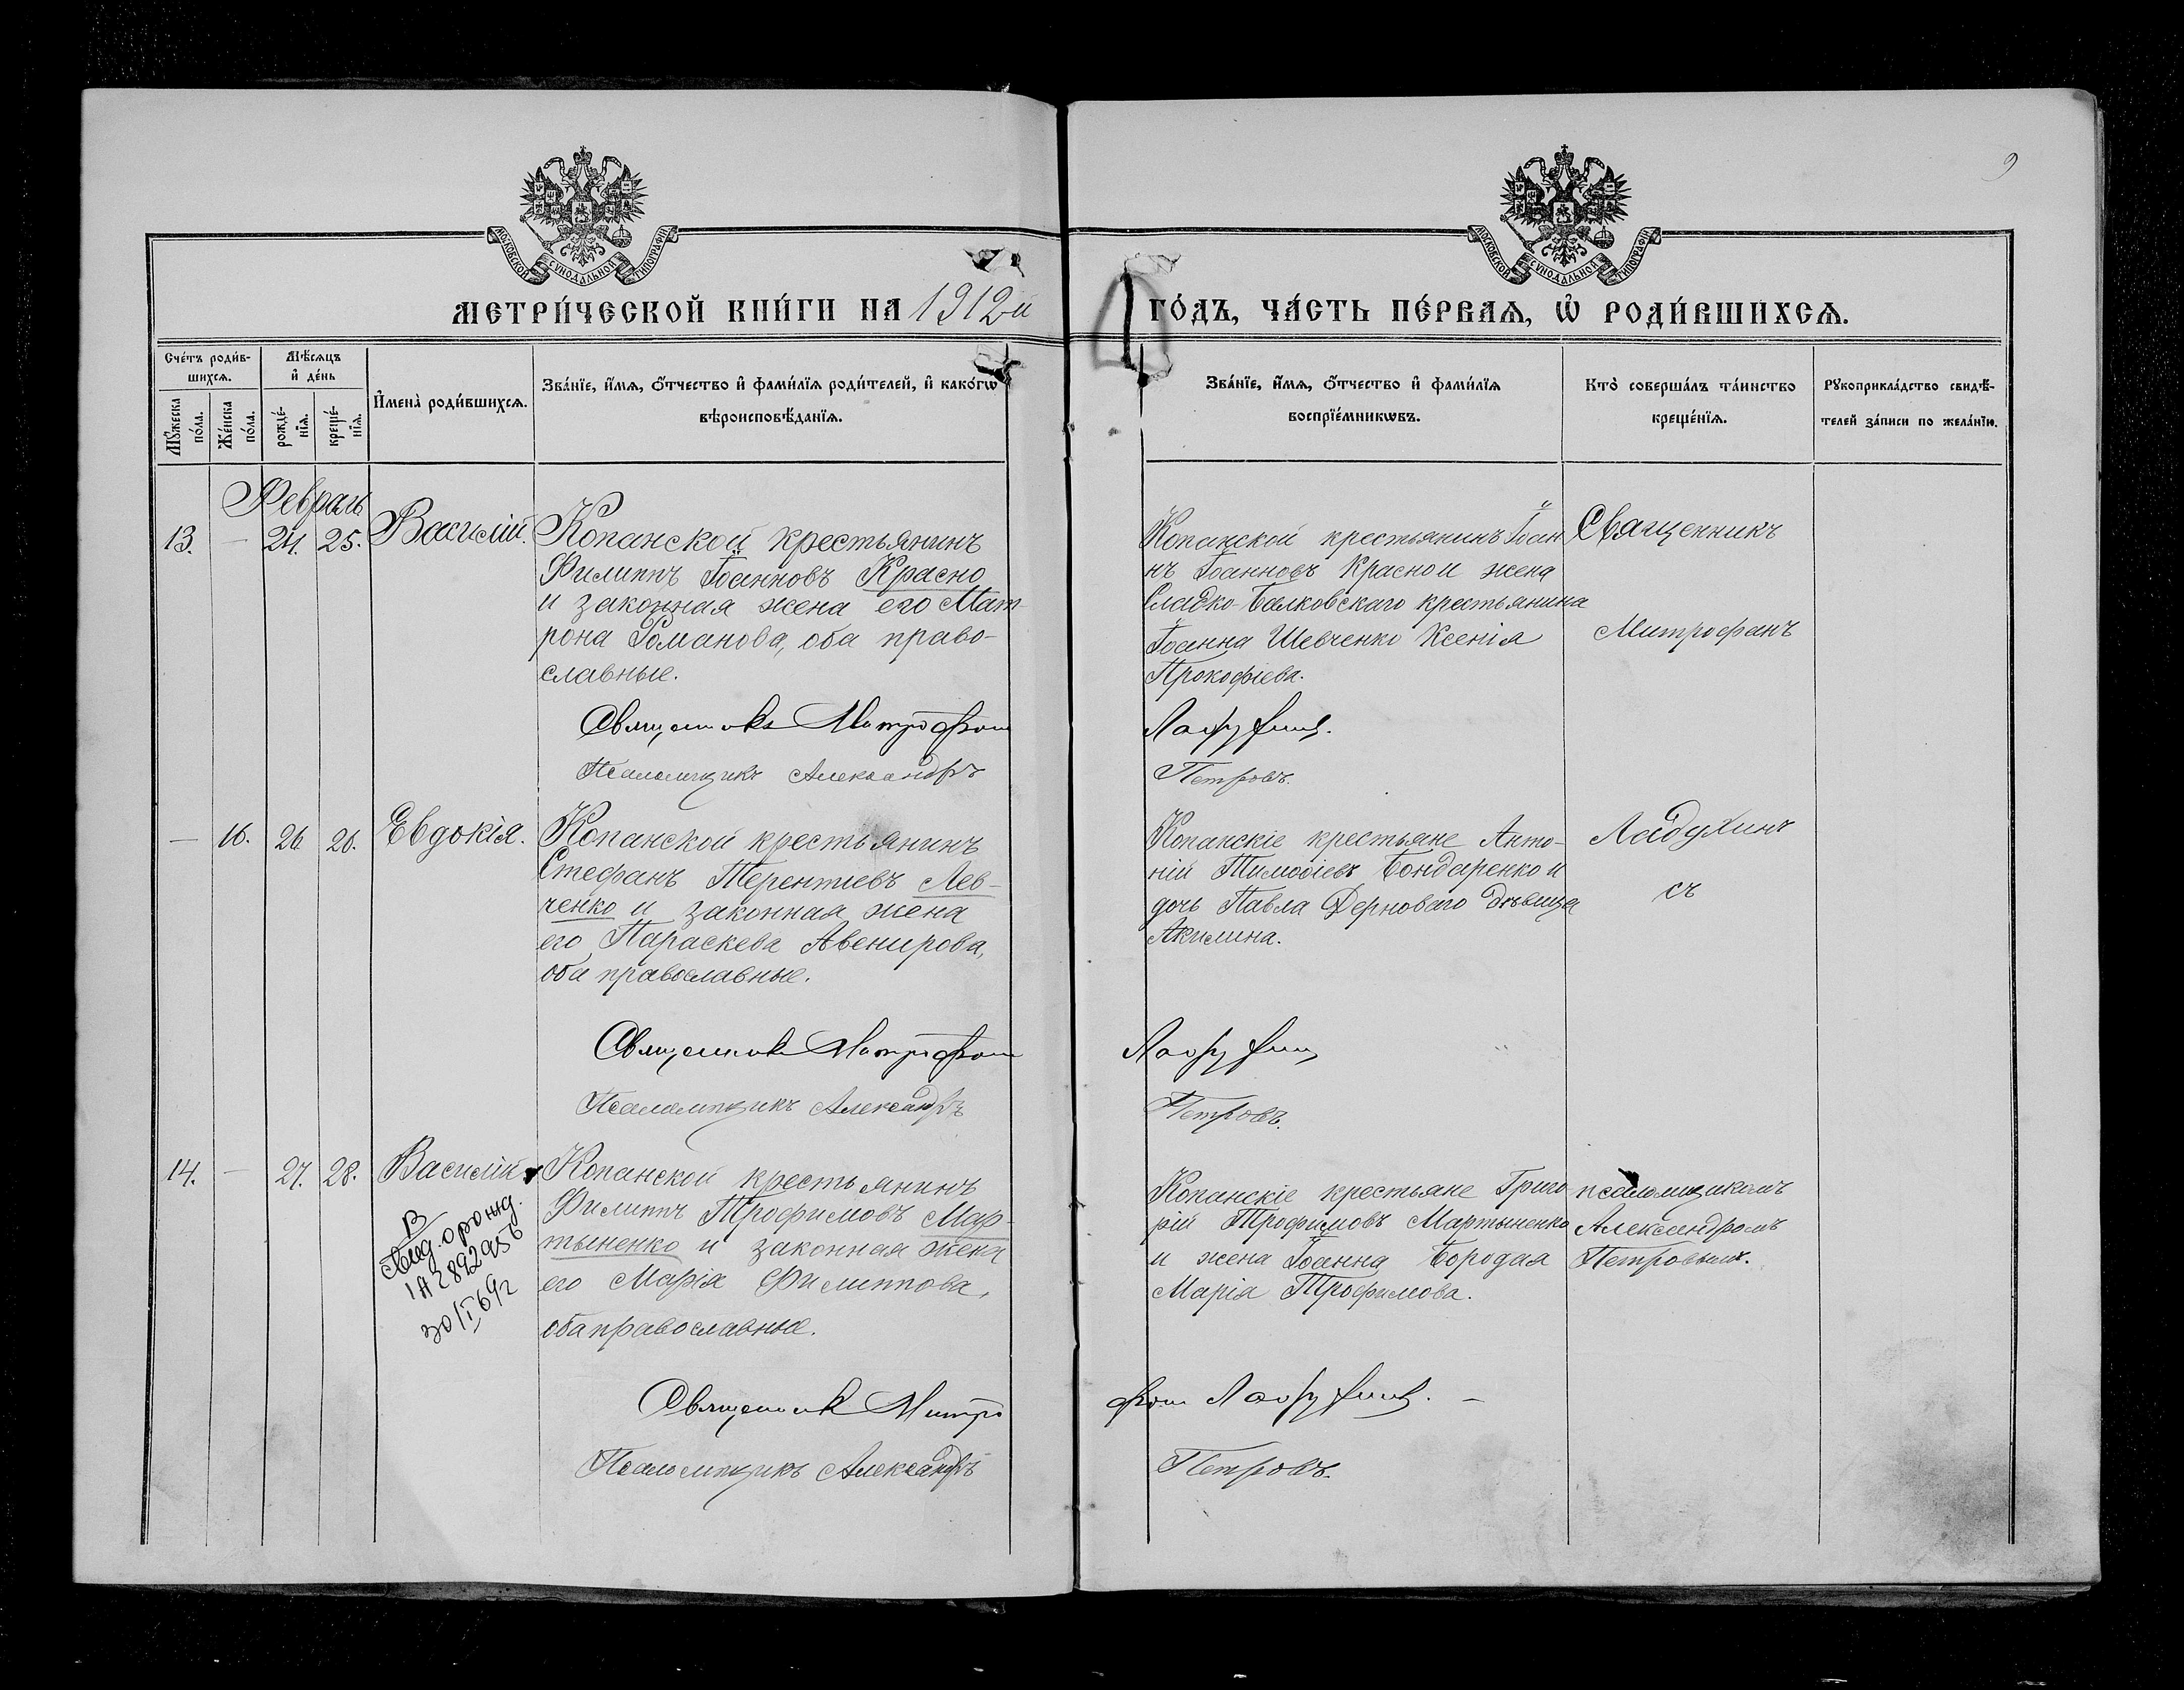 9
МОСКОВСКОЙ СѴНОДАЛЬНОЙ ТИПОГРАФІИ
МОСКОВСКОЙ СѴНОДАЛЬНОЙ ТИПОГРАФІИ
МЕТРИ́ЧЕСКОЙ КНИ́ГИ НА 1912й ГО́ДЪ, ЧА́СТЬ ПЕ́РВАѦ, Ѽ РОДИ́ВШИХСѦ.
Сче́тъ роди́в-
шихсѧ.
Мѣ́сѧцъ
и҆ де́нь
Мꙋ́жеска
по́ла.
Же́нска
по́ла.
рожде́-
нїѧ.
креще́-
нїѧ.
И҆мена̀ роди́вшихсѧ.
Зва́нїе, и҆́мѧ, ѻ҆́тчество и҆ фами́лїѧ роди́телей, и҆ како́гѡ
вѣроисповѣ́данїѧ.
Зва́нїе, и҆́мѧ, ѻ҆́тчество и҆ фами́лїѧ
воспрїе́мникѡвъ.
Кто̀ соверша́лъ та́инство
креще́нїѧ.
Рꙋкоприкла́дство свидѣ́-
телей за́писи по жела́нїю.
Февраль
13. — 24. 25. Василій.
Копанской крестьянинъ
Филиппъ Іоанновъ Красно
и законная жена его Мат-
рона Романова, оба право-
славные.
Священникъ Митрофан
Псаломщикъ Александръ
Копанской крестьянинъ Іоан
нъ Іоанновъ Красной жена
Сладко-Балковскаго крестьянина
Іоанна Шевченко Ксенія
Прокофіева.
Петровъ.
Священникъ
Митрофанъ
— 16. 26. 26. Евдокія.
Копанской крестьянинъ
Стефанъ Терентиевъ Лев-
ченко и законная жена
его Параскева Авенирова,
оба православные.
Священник Митрофан
Псаломщикъ Александръ
Копанскіе крестьяне Анто-
ній Тимоѳіевъ Бондаренко и
дочь Павла Дерноваго дѣвица
Акилина.
Петровъ.
Ладухинъ
съ
14. — 27. 28. Василій
В
1А 2892956
30/I 69г
Копанской крестьянинъ
Филиппъ Трофимовъ Мар-
тыненко и законная жена
его Марія Филиппова,
оба православные.
Священник Митро
Псаломщикъ Александръ
Копанскіе крестьяне Григо-
рій Трофимовъ Мартыненко
и жена Іоанна Бородая
Марія Трофимова.
Петровъ.
псаломщикомъ
Александромъ
Петровымъ.